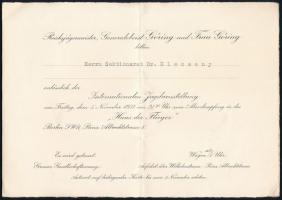 Reichsjägermeister, Generaloberst Göring und Frau Göring
bitten
Herrn Sektionsrat Dr.
anlässlich der
Internationalen Jagdausstellung
am Freitag, dem 5. November 1937 um Uhr zum Abendempfang in das
"Haus der Flieger"
Berlin SW11, Prinz Albrechtstrasse 5.
Es wird gebeten:
Wagen: Uhr
Anfahrt: Wilhelmstrasse - Prinz Albrechtstrasse
Antwort auf beiliegender Karte bis zum November erbeten